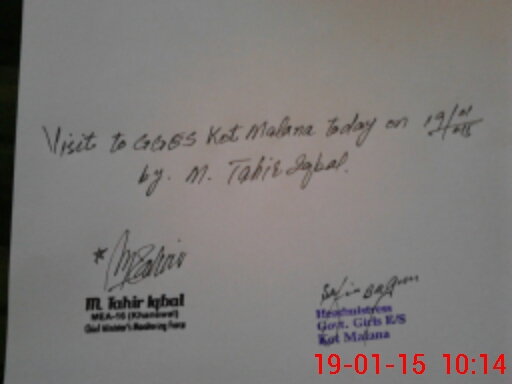 Visit to GGES Kot Malana today on 19/01/2015
by. M. Tahir Iqbal.
M. Tahir Iqbal
MEA-16 (Khanewal)
Chief Minister's Monitoring Force
Headmistress
Govt. Girls E/S
Kot Malana
19-01-15 10:14